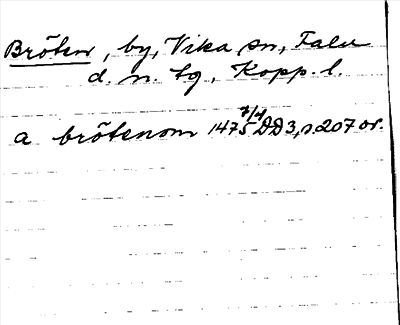 Bröten, by, Vika sn, Falu
d. n. tg, Kopp. l.
a brötenom 1475 7/4 DD3, s. 207 or.